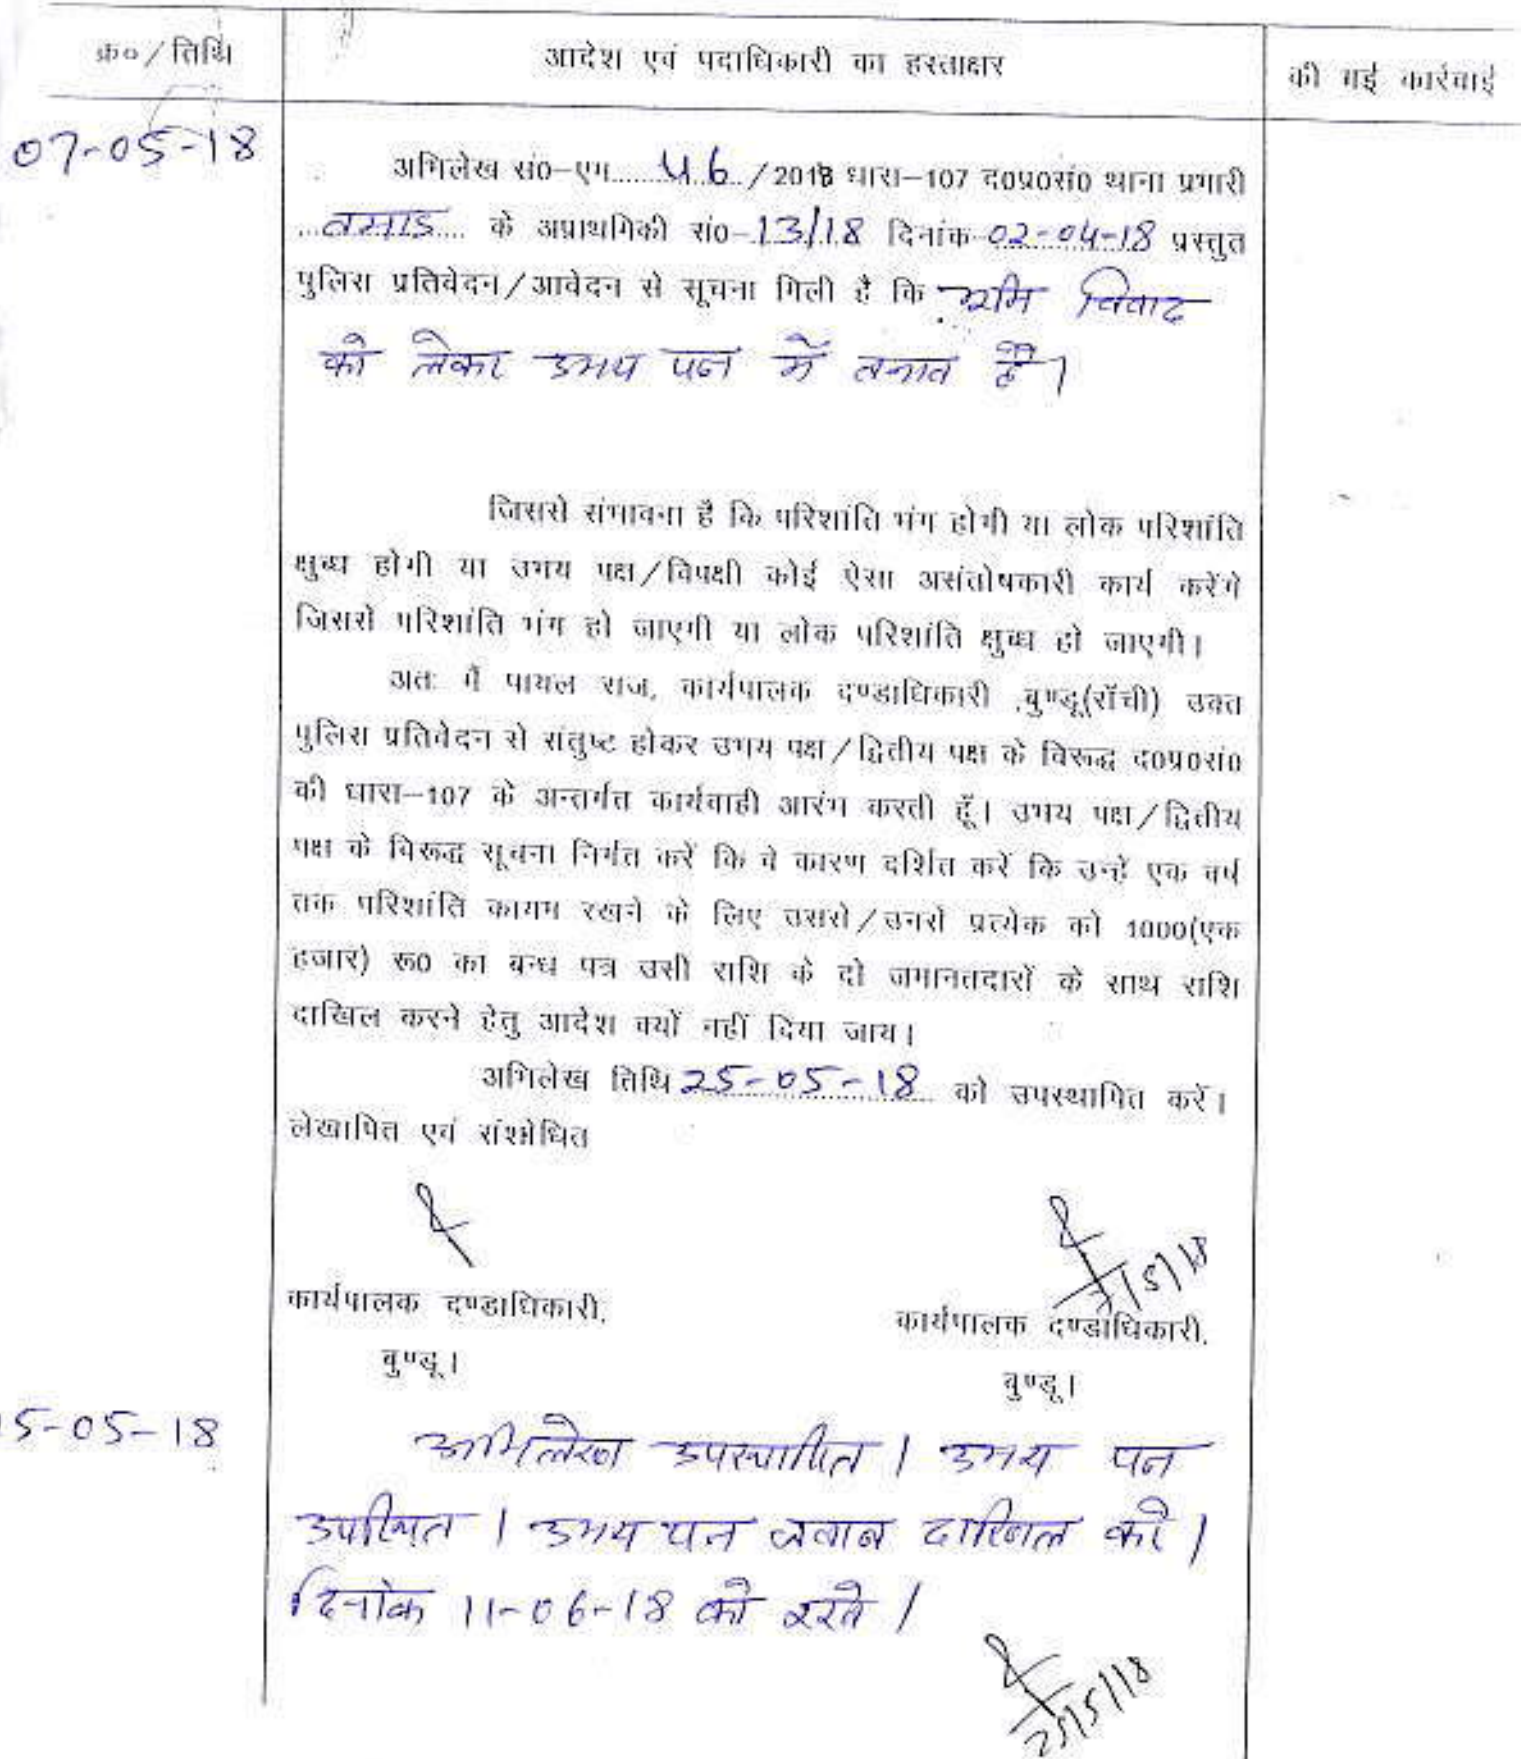 क्र०/तिथि
आदेश एवं पदाधिकारी का हस्ताक्षर
की गई कार्रवाई
07-05-18
अभिलेख सं0-एम 46/2018 धारा-107 द0प्र0सं0 थाना प्रभारी
तमाड के अप्राथमिकी सं0-13/18 दिनांक 02-04-18 प्रस्तुत
पुलिस प्रतिवेदन/आवेदन से सूचना मिली है कि विवाद
को लेकर उभय पक्ष में तनाव है।
जिससे संभावना है कि परिशांति भंग होगी या लोक परिशांति
क्षुब्ध होगी या उभय पक्ष/विपक्षी कोई ऐसा असंतोषकारी कार्य करेंगे
जिससे परिशांति भंग हो जाएगी या लोक परिशांति क्षुब्ध हो जाएगी।
अतः मैं पायल राज, कार्यपालक दण्डाधिकारी ,बुण्डू(राँची) उक्त
पुलिस प्रतिवेदन से संतुष्ट होकर उभय पक्ष/द्वितीय पक्ष के विरूद्ध द0प्र0सं0
की धारा-107 के अन्तर्गत कार्यवाही आरंभ करती हूँ। उभय पक्ष/द्वितीय
पक्ष के विरूद्ध सूचना निर्गत करें कि वे कारण दर्शित करें कि उन्हें एक वर्ष
तक परिशांति कायम रखने के लिए उससे/उनसे प्रत्येक को 1000(एक
हजार) रू0 का बन्ध पत्र उसी राशि के दो जमानतदारों के साथ राशि
दाखिल करने हेतु आदेश क्यों नहीं दिया जाय।
अभिलेख तिथि 25-05-18 को उपस्थापित करें।
लेखापित एवं संशोधित
7/5/18
कार्यपालक दण्डाधिकारी,
कार्यपालक दण्डाधिकारी,
बुण्डू।
बुण्डू।
5-05-18
अभिलेख उपस्थापित। उभय पक्ष
उपस्थित। उभय पक्ष जवाब दाखिल करें।
दिनांक 11-06-18 को रखें।
25/5/18